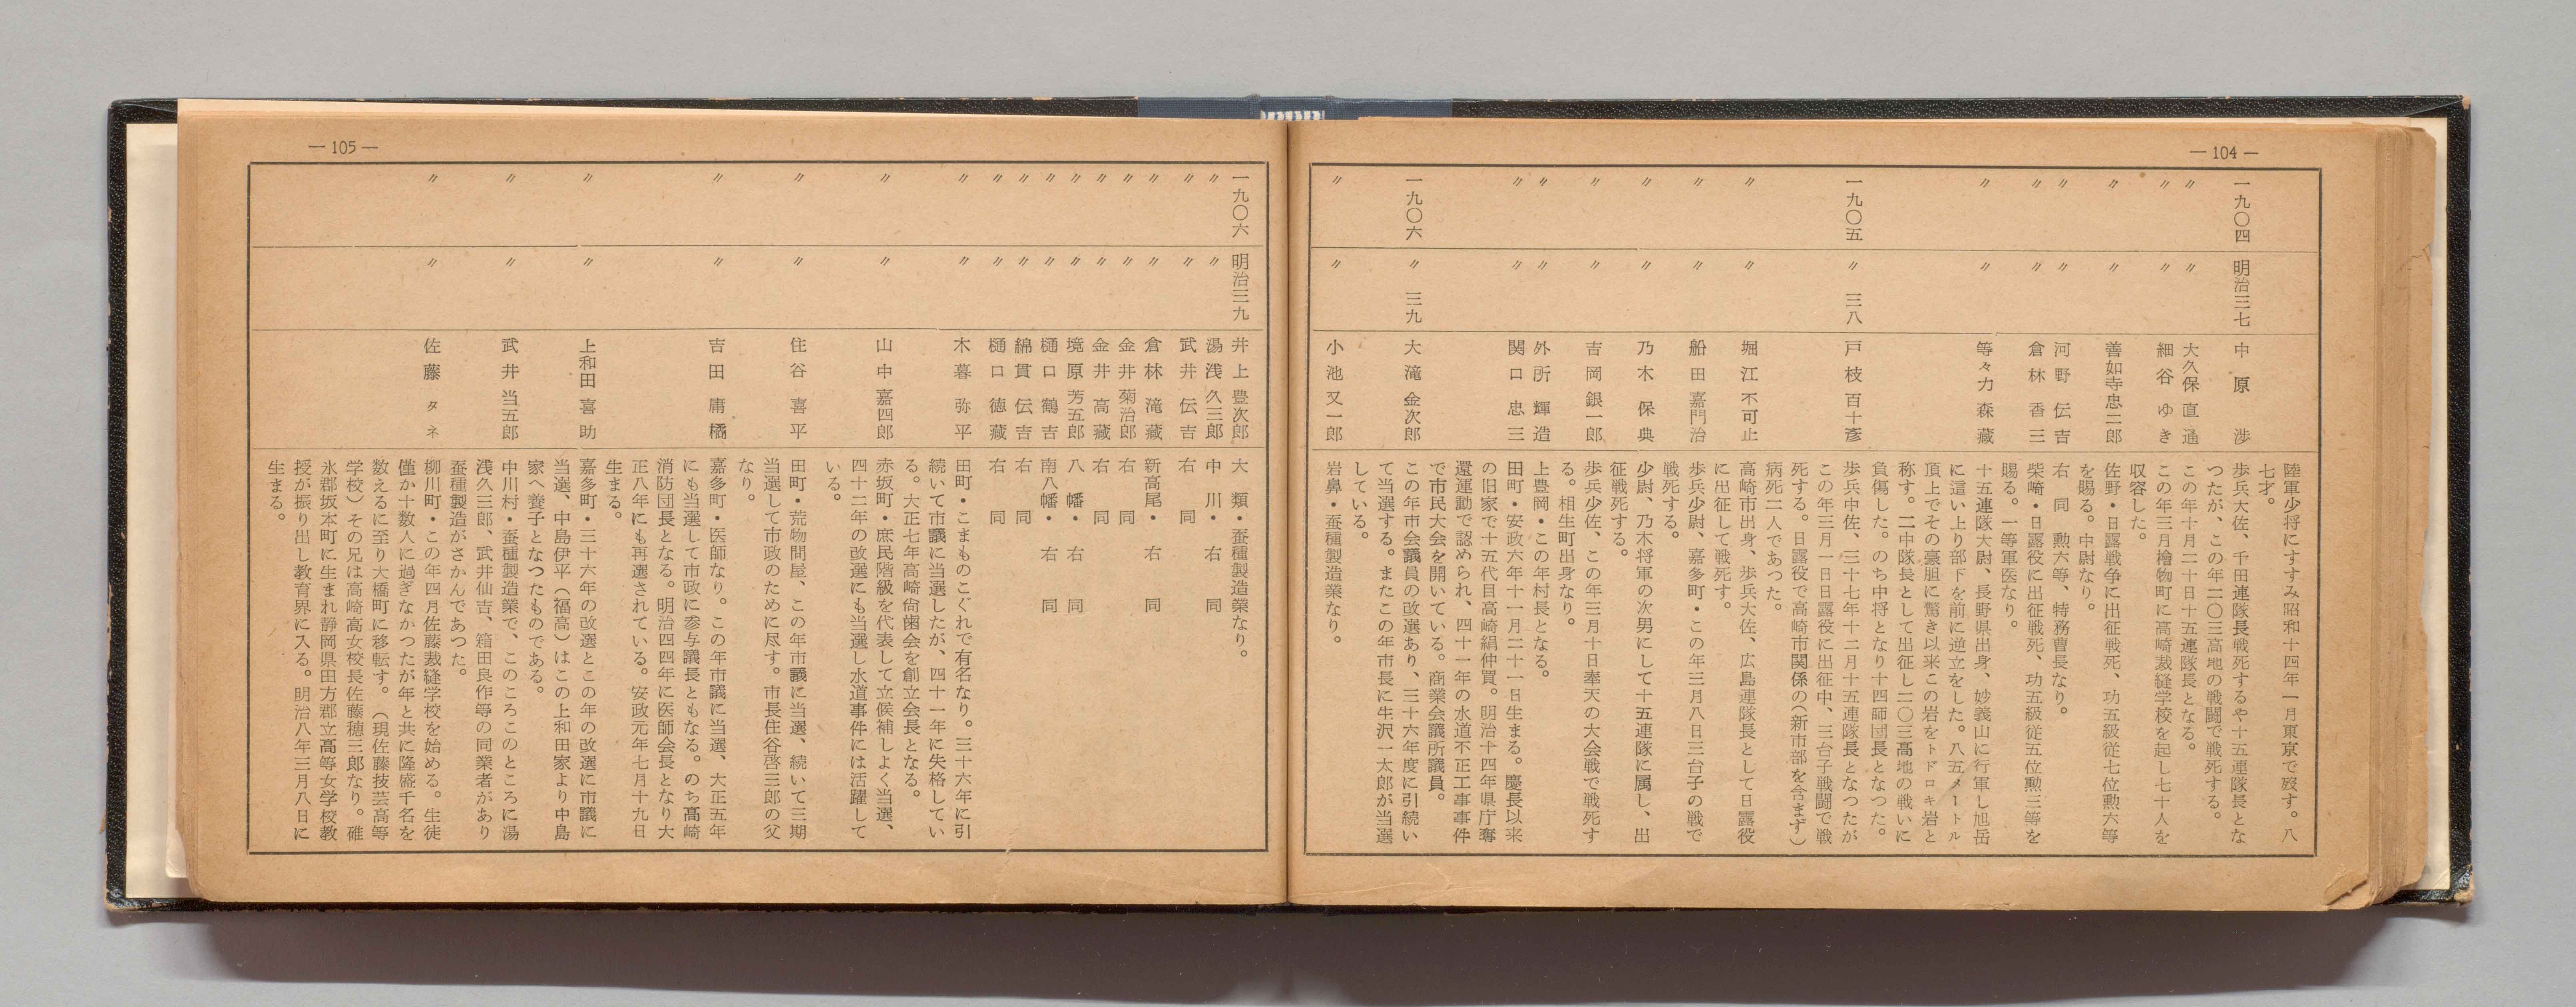 — 104 —
陸軍少将にすすみ昭和十四年一月東京で歿す。八
七才。
一九〇四 明治三七 中原 渉 歩兵大佐、千田連隊長戦死するや十五連隊長とな
つたが、この年二〇三高地の戦闘で戦死する。
〃 〃 大久保直通 この年十月二十日十五連隊長となる。
〃 〃 細谷ゆき この年三月檜物町に高崎裁縫学校を起し七十人を
収容した。
〃 〃 善如寺忠二郎 佐野・日露戦争に出征戦死、功五級従七位勲六等
を賜る。中尉なり。
〃 〃 河野伝吉 右同 勲六等、特務曹長なり。
〃 〃 倉林香三 柴崎・日露役に出征戦死、功五級従五位勲三等を
賜る。一等軍医なり。
〃 〃 等々力森蔵 十五連隊大尉、長野県出身、妙義山に行軍し旭岳
に這い上り部下を前に逆立をした。八五メートル
頂上でその豪胆に驚き以来この岩をトドロキ岩と
称す。二中隊長として出征し二〇三高地の戦いに
負傷した。のち中将となり十四師団長となつた。
一九〇五 〃 三八 戸枝百十彦 歩兵中佐、三十七年十二月十五連隊長となつたが
この年三月一日日露役に出征中、三台子戦闘で戦
死する。日露役で高崎市関係の(新市部を含まず)
病死二人であつた。
〃 〃 堀江不可止 高崎市出身、歩兵大佐、広島連隊長として日露役
に出征して戦死す。
〃 〃 船田嘉門治 歩兵少尉、嘉多町・この年三月八日三台子の戦で
戦死する。
〃 〃 乃木保典 少尉、乃木将軍の次男にして十五連隊に属し、出
征戦死する。
〃 〃 吉岡銀一郎 歩兵少佐、この年三月十日奉天の大会戦で戦死す
る。相生町出身なり。
〃 〃 外所輝造 上豊岡・この年村長となる。
〃 〃 関口忠三 田町・安政六年十一月二十一日生まる。慶長以来
の旧家で十五代目高崎絹仲買。明治十四年県庁奪
還運動で認められ、四十一年の水道不正工事事件
で市民大会を開いている。商業会議所議員。
一九〇六 〃 三九 大滝金次郎 この年市会議員の改選あり、三十六年度に引続い
て当選する。またこの年市長に生沢一太郎が当選
している。
〃 〃 小池又一郎 岩鼻・蚕種製造業なり。
— 105 —
一九〇六 明治三九 井上豊次郎 大類・蚕種製造業なり。
〃 〃 湯浅久三郎 中川・右同
〃 〃 武井伝吉 右同
〃 〃 倉林滝蔵 新高尾・右同
〃 〃 金井菊治郎 右同
〃 〃 金井高蔵 右同
〃 〃 境原芳五郎 八幡・右同
〃 〃 樋口鶴吉 南八幡・右同
〃 〃 綿貫伝吉 右同
〃 〃 樋口徳蔵 右同
〃 〃 木暮弥平 田町・こまものこぐれで有名なり。三十六年に引
続いて市議に当選したが、四十一年に失格してい
る。大正七年高崎尚歯会を創立会長となる。
〃 〃 山中嘉四郎 赤坂町・庶民階級を代表して立候補しよく当選、
四十二年の改選にも当選し水道事件には活躍して
いる。
〃 〃 住谷喜平 田町・荒物問屋、この年市議に当選、続いて三期
当選して市政のために尽す。市長住谷啓三郎の父
なり。
〃 〃 吉田庸橘 嘉多町・医師なり。この年市議に当選、大正五年
にも当選して市政に参与議長ともなる。のち高崎
消防団長となる。明治四四年に医師会長となり大
正八年にも再選されている。安政元年七月十九日
生まる。
〃 〃 上和田喜助 嘉多町・三十六年の改選とこの年の改選に市議に
当選、中島伊平(福高)はこの上和田家より中島
家へ養子となつたものである。
〃 〃 武井当五郎 中川村・蚕種製造業で、このころこのところに湯
浅久三郎、武井仙吉、箱田良作等の同業者があり
蚕種製造がさかんであつた。
〃 〃 佐藤タネ 柳川町・この年四月佐藤裁縫学校を始める。生徒
僅か十数人に過ぎなかつたが年と共に隆盛千名を
数えるに至り大橋町に移転す。(現佐藤技芸高等
学校)その兄は高崎高女校長佐藤穂三郎なり。碓
氷郡坂本町に生まれ静岡県田方郡立高等女学校教
授が振り出し教育界に入る。明治八年三月八日に
生まる。